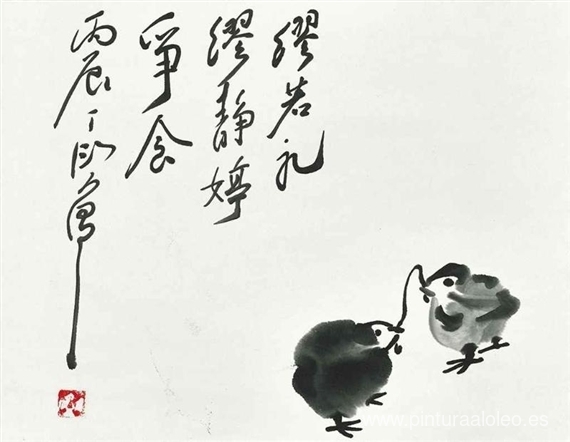 繆若礼
繆静婷
爭食
丙辰丁衍庸
www.pinturaaloleo.es